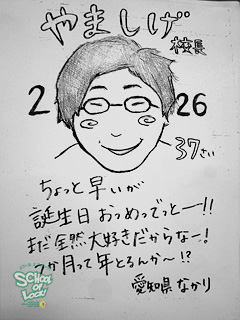 やましげ
校長
2 26
37さい
ちょっと早いが
誕生日 おっめでっとー!!
まだ全然大好きだからなー!
つか月って年とるんか〜!?
愛知県 なかり
SCHOOL
OF
LOCK!